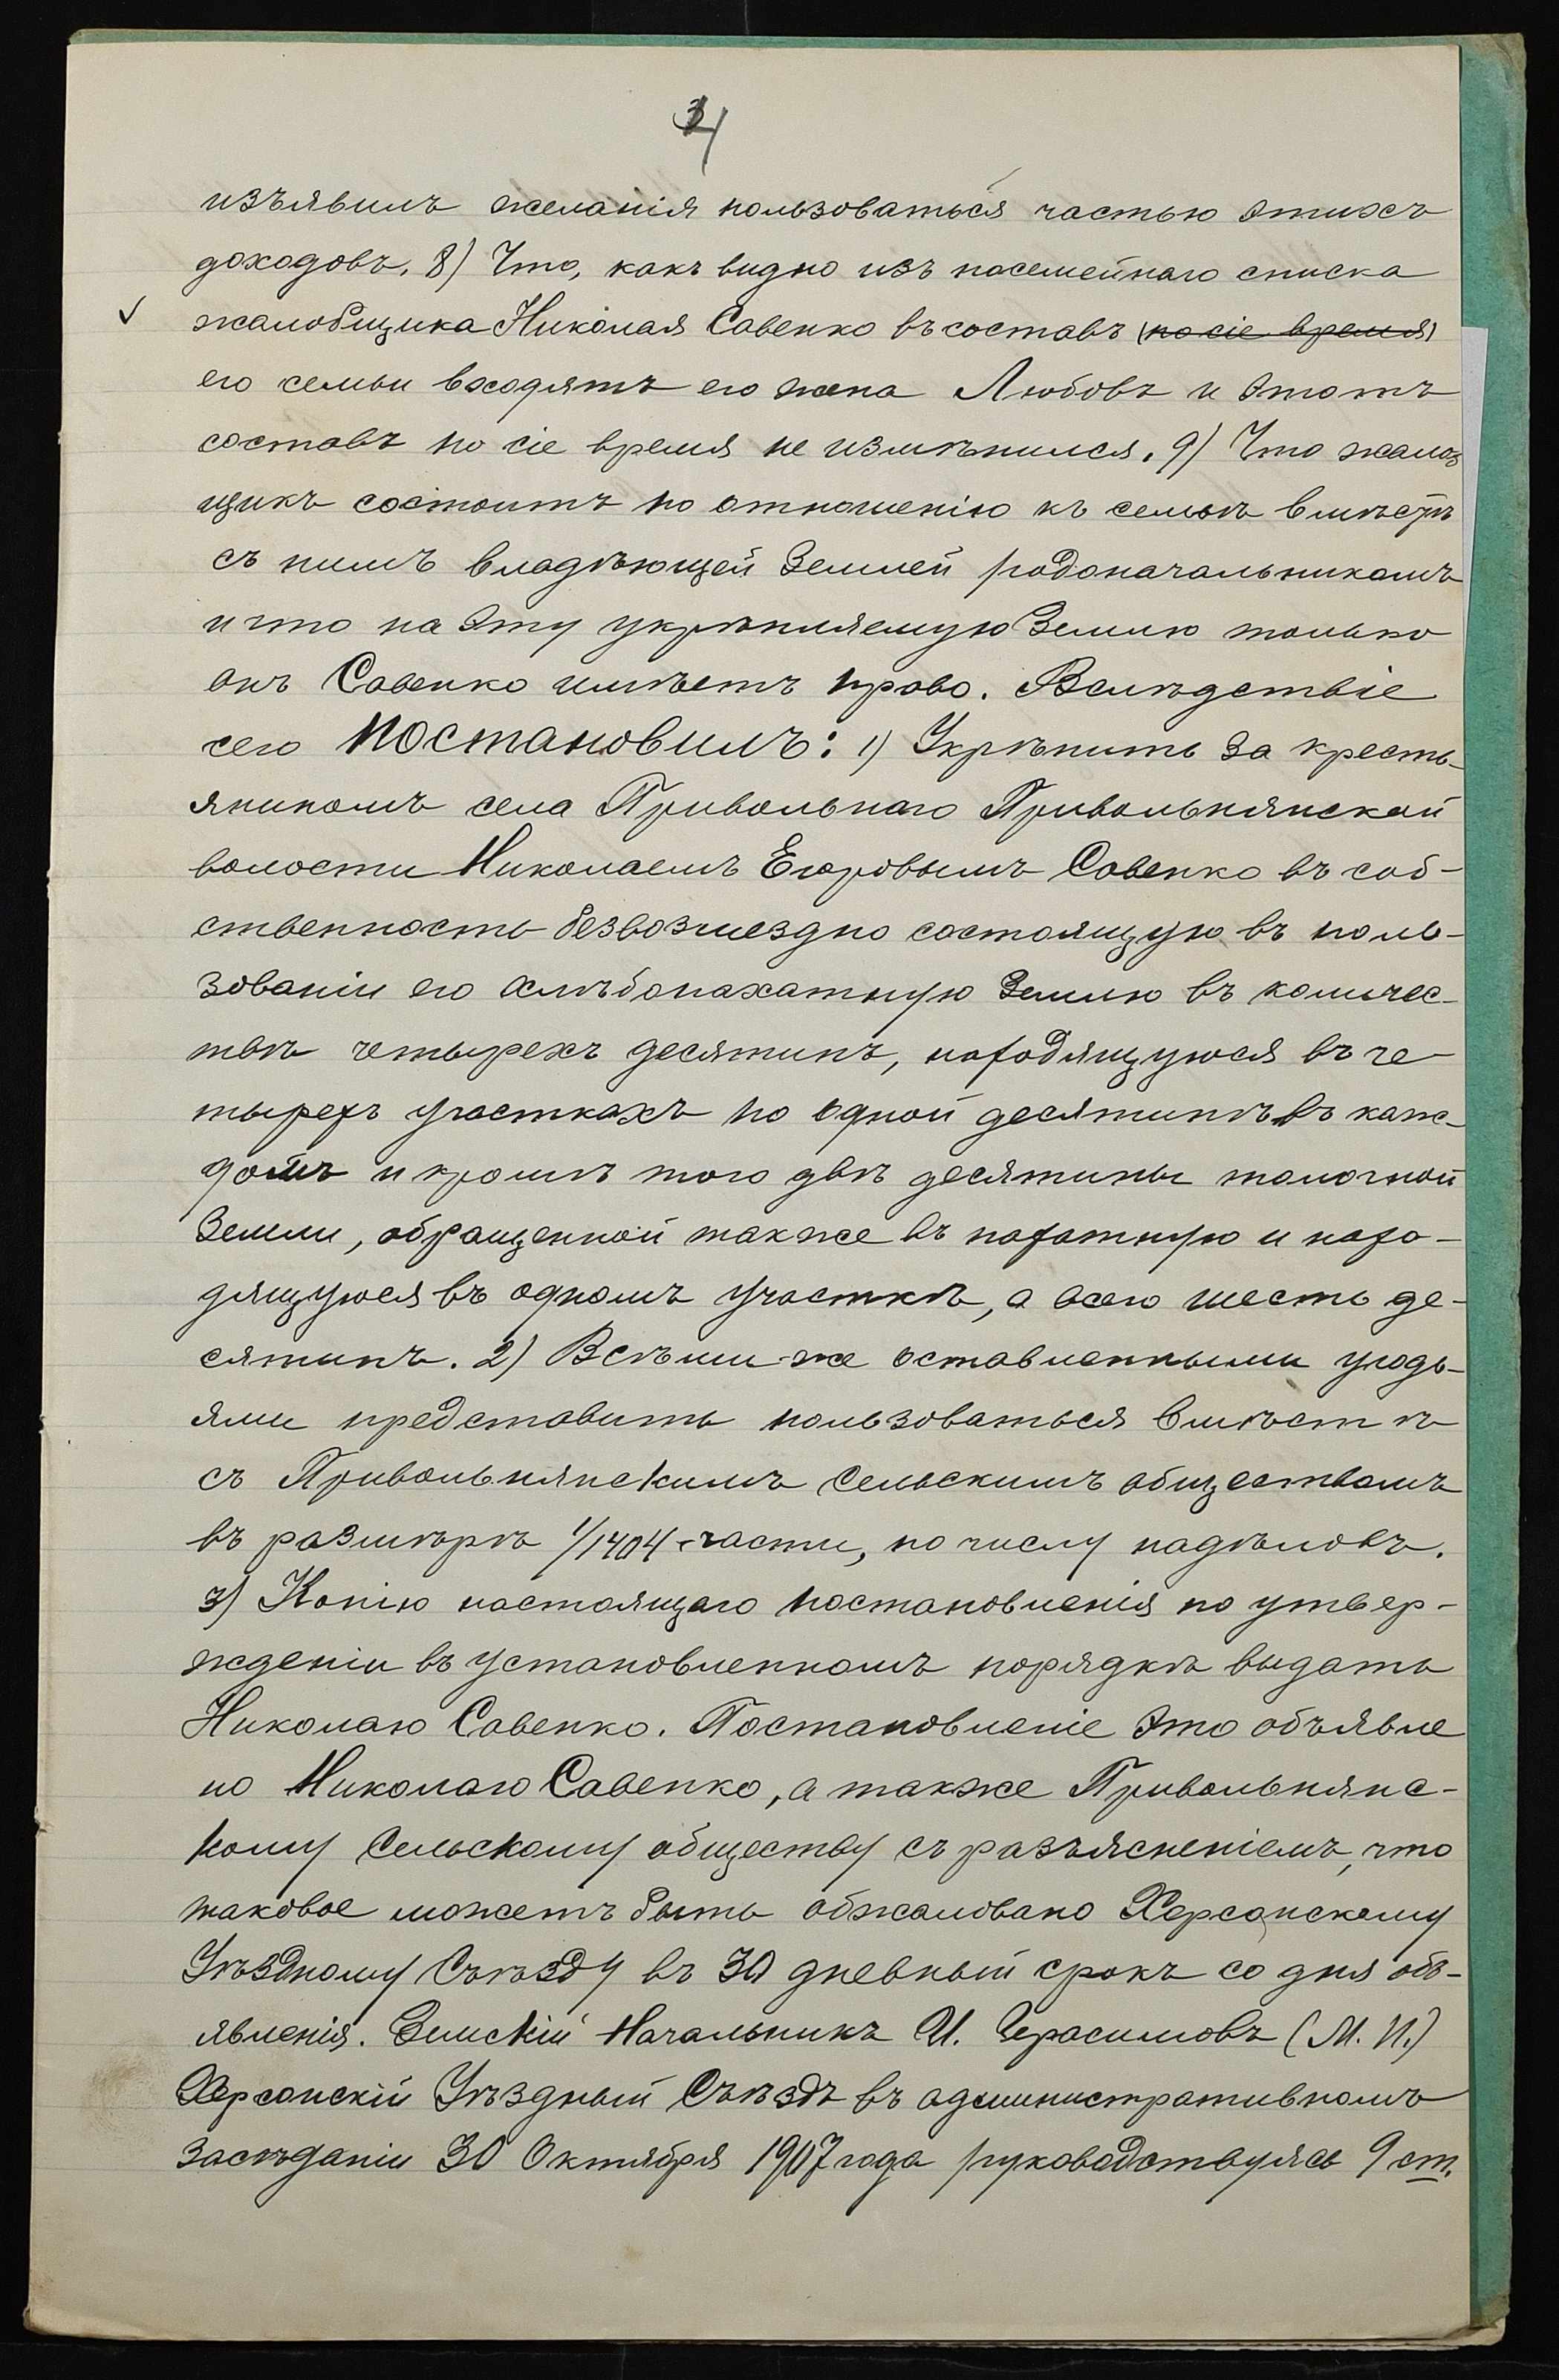 34
изъявилъ желанія пользоваться частью этихъ
доходовъ. 8) Что, какъ видно изъ посемейнаго списка
✓ жалобщика Николая Савенко въ составъ (по сіе время)
его семьи входятъ его жена Любовь и этотъ
составъ по сіе время не измѣнился. 9) Что жалоб
щикъ состоитъ по отношенію къ семьѣ вмѣстѣ
съ нимъ владѣющей землей родоначальникомъ
и что на эту укрѣпляемую землю только
онъ Савенко имѣетъ право. Вслѣдствіе
сего постановилъ: 1) Укрѣпить за кресть-
яниномъ села Привольнаго Привольнянской
волости Николаемъ Егоровымъ Савенко въ соб-
ственность безвозмездно состоящую въ поль-
зованіи его хлѣбопахатную землю въ количес-
твѣ четырехъ десятинъ, находящуюся въ че-
тырехъ участкахъ по одной десятинѣ въ каж-
домъ и кромѣ того двѣ десятины толочной
земли, обращенной также въ пахатную и нахо-
дящуюся въ одномъ участкѣ, а всего шесть де-
сятинъ. 2) Всѣми-же оставленными угодь-
ями представить пользоваться вмѣстѣ
съ Привольнянскимъ сельскимъ обществомъ
въ размѣрѣ 1/1404 части, по числу надѣловъ.
3) Копію настоящаго постановленія по утвер-
жденіи въ установленномъ порядкѣ выдать
Николаю Савенко. Постановленіе это объявле
но Николаю Савенко, а также Привольнянс-
кому сельскому обществу съ разъясненіемъ, что
таковое можетъ быть обжаловано Херсонскому
Уѣздному Съѣзду въ 30 дневный срокъ со дня объ-
явленія. Земскій Начальникъ И. Герасимовъ (М. П.)
Херсонскій Уѣздный Съѣздъ въ административномъ
засѣданіи 30 Октября 1907 года руководствуясь 9 ст.